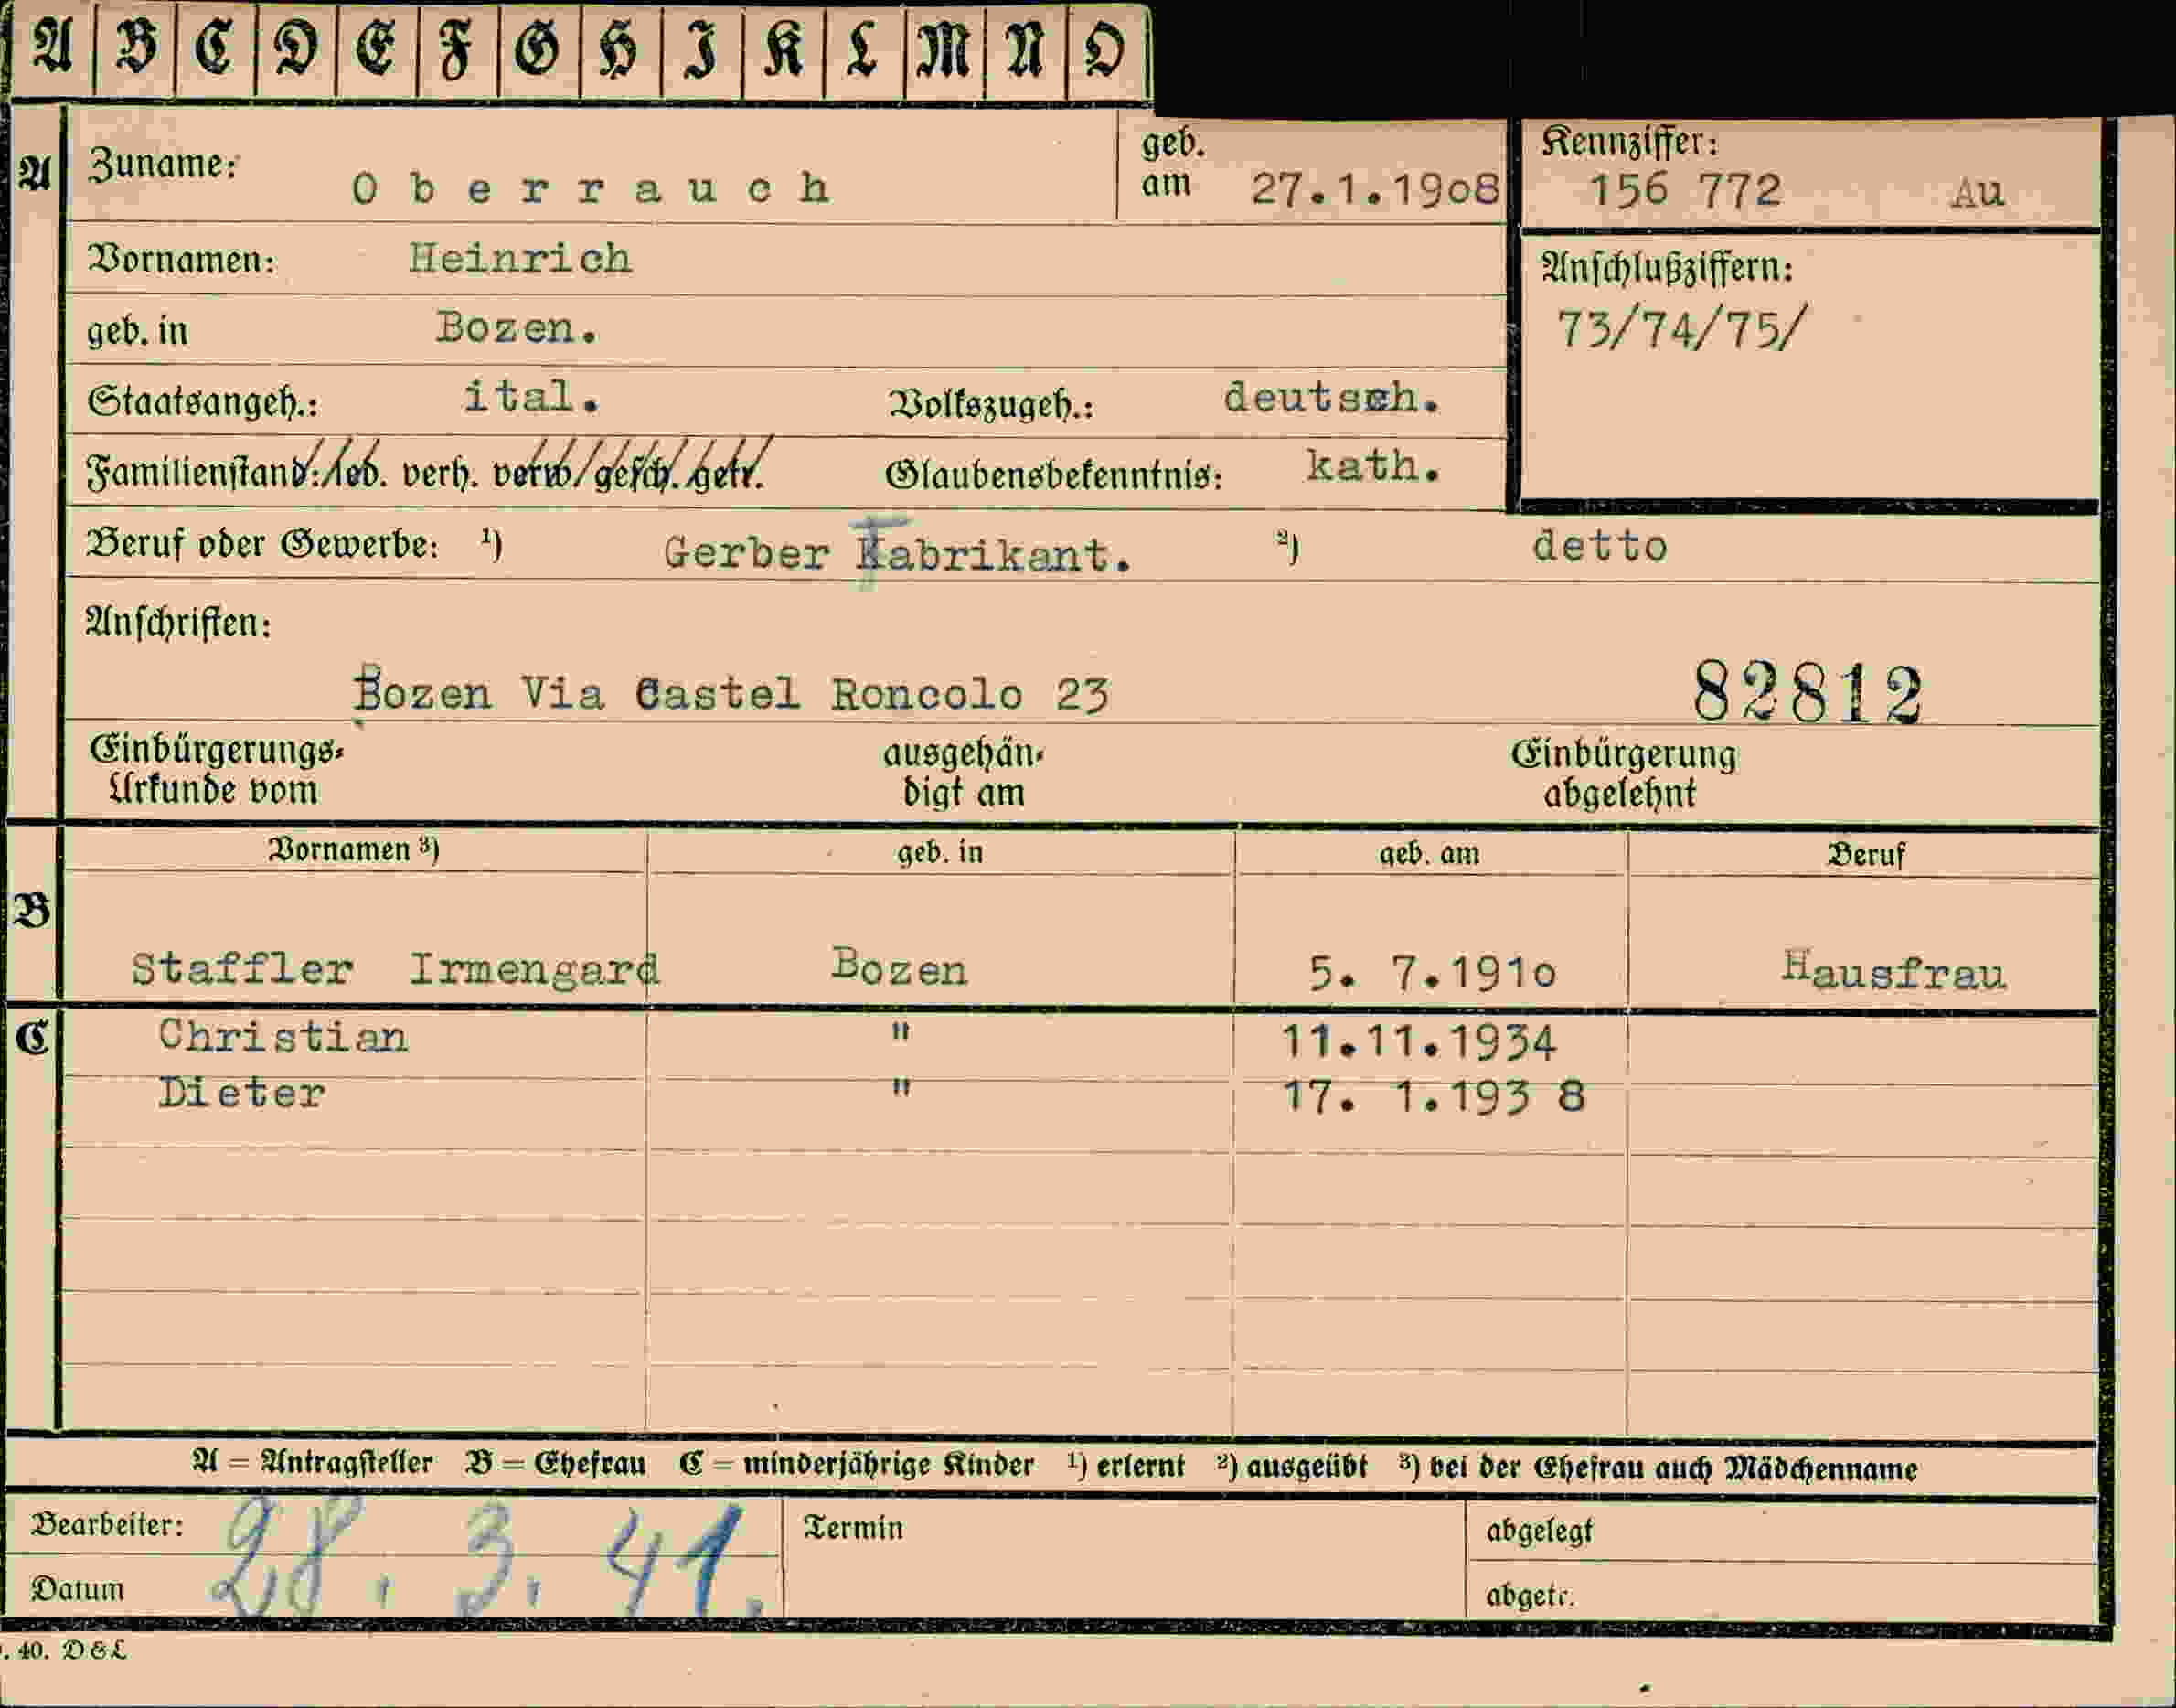 A B C D E F G H I K L M N O
A Zuname: Oberrauch geb. am 27.1.1908 Kennziffer: 156 772 Au
Vornamen: Heinrich Anschlußziffern:
geb. in Bozen. 73/74/75/
Staatsangeh.: ital. Volkszugeh.: deutsch.
Familienstand: led. verh. verw. gesch. getr. Glaubensbekenntnis: kath.
Beruf oder Gewerbe: ¹) Gerber Fabrikant. ²) detto
Anschriften:
Bozen Via Castel Roncolo 23 82812
Einbürgerungs- ausgehän- Einbürgerung
Urkunde vom digt am abgelehnt
Vornamen ³) geb. in geb. am Beruf
B
Staffler Irmengard Bozen 5. 7.1910 Hausfrau
C Christian " 11.11.1934
Dieter " 17. 1.193 8
A = Antragsteller B = Ehefrau C = minderjährige Kinder ¹) erlernt ²) ausgeübt ³) bei der Ehefrau auch Mädchenname
Bearbeiter: Termin abgelegt
28. 3. 41.
Datum abgetr.
. 40. D&L